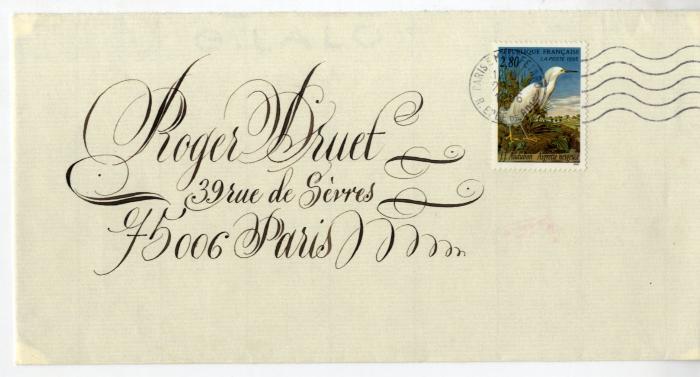 Roger Druet
39 rue de Sèvres
75006 Paris
RÉPUBLIQUE FRANÇAISE
2,80
LA POSTE 1995
J.J. Audubon Aigrette neigeuse
PARIS